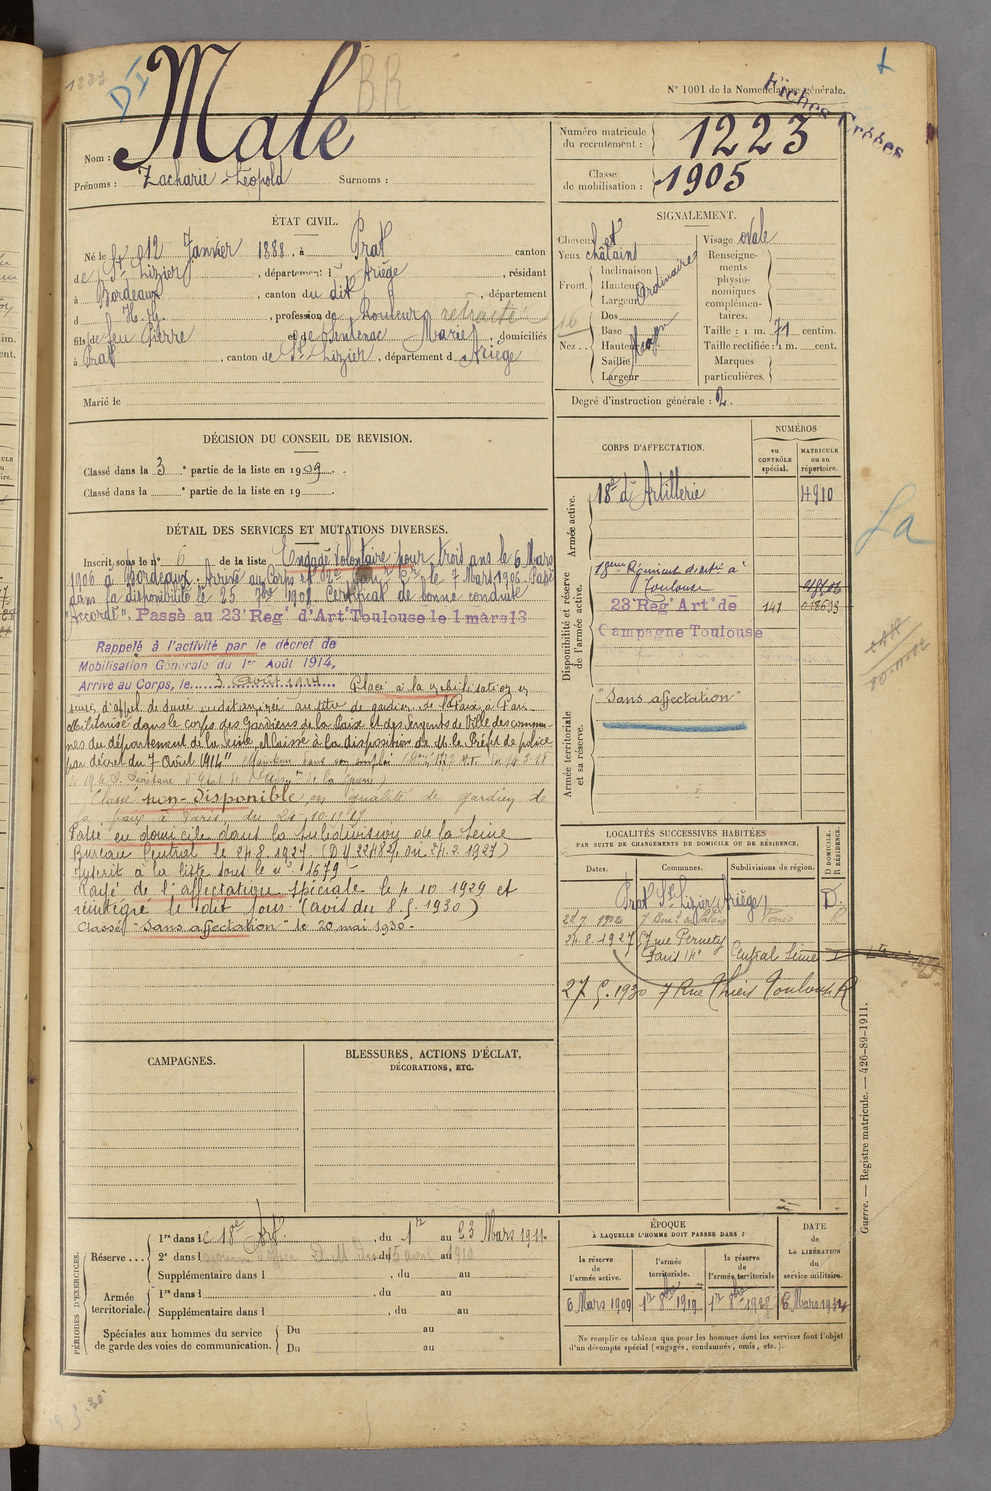 1223
DI
BR
N° 1001 de la Nomenclature générale.
Fiches Créées
Nom : Male
Prénoms : Zacharie-Léopold Surnoms :
Numéro matricule du recrutement : 1223
Classe de mobilisation : 1905
ÉTAT CIVIL.
Né le 12 Janvier 1888, à Prat canton
de St Lizier, département de l'Ariège, résidant
à Bordeaux, canton du dit, département
d, profession de Rouleur retraité
fils de feu Pierre et de Sentenac Marie, domiciliés
à Prat, canton de St Lizier, département d Ariège
Marié le
SIGNALEMENT.
Cheveux et
Yeux châtains
Front. Inclinaison
Hauteur Ordinaire
Largeur
Nez. Dos
Base
Hauteur Moyen
Saillie
Largeur
16
Visage ovale
Renseignements physionomiques complémentaires.
Taille : 1 m. 71 centim.
Taille rectifiée : 1 m. cent.
Marques particulières.
Degré d'instruction générale : 2.
DÉCISION DU CONSEIL DE REVISION.
Classé dans la 3e partie de la liste en 1909.
Classé dans la e partie de la liste en 19
CORPS D'AFFECTATION.
NUMÉROS
au CONTRÔLE spécial.
MATRICULE ou au répertoire.
Armée active.
18e d'Artillerie 4910
Disponibilité et réserve de l'armée active.
Toulouse
23e Regt Art° de 141
Campagne Toulouse
Armée territoriale et sa réserve.
"Sans affectation"
DÉTAIL DES SERVICES ET MUTATIONS DIVERSES.
Inscrit sous le n° 6 de la liste Engagé Volontaire pour trois ans le 6 Mars
1906 à Bordeaux. Arrivé au Corps et le 7 Mars 1906. Passé
dans la disponibilité le 25 7bre 1908 Certificat de bonne conduite
"Accordé". Passé au 23e Regt d'Art Toulouse le 1 mars 13
Rappelé à l'activité par le décret de
Mobilisation Générale du 1er Août 1914,
Arrivé au Corps, le 3 Août 1914. Placé à la mobilisation en
sursis d'appel de durée indéterminée au titre de gardien de la Paix à Paris
Militarisé dans le corps des Gardiens de la Paix et des Sergents de Ville des commu-
nes du département de la Seine, et laissé à la disposition de M. le Préfet de police
par décret du 7 Août 1914" Maintenu dans son emploi
Classé non-disponible en qualité de gardien de
la paix à Paris, du
Passé en domicile dans la Subdivision de la Seine
Bureau Central le 24 8 1927
Inscrit à la liste sous le n° 1679
Rayé de l'affectation spéciale le 4 10 1929 et
réintégré le dit jour. (avis du 8.5.1930)
Classé "Sans affectation" le 20 mai 1930.
La
LOCALITÉS SUCCESSIVES HABITÉES
PAR SUITE DE CHANGEMENTS DE DOMICILE OU DE RÉSIDENCE.
Dates. Communes. Subdivisions de région. D DOMICILE. R RÉSIDENCE.
Prat St Lizier (Ariège) D.
Paris R
24.8.1927 7 rue Pernety
Paris 14e Central Seine
27 5. 1930 7 Rue Thiers Toulouse R
CAMPAGNES.
BLESSURES, ACTIONS D'ÉCLAT,
DÉCORATIONS, ETC.
PÉRIODES D'EXERCICES.
Réserve... 1re dans le 18e Art. , du 1er au 23 Mars 1911.
2e dans l , du 5 avril au 1910
Supplémentaire dans l , du au
Armée territoriale. 1re dans l , du au
Supplémentaire dans l , du au
Spéciales aux hommes du service de garde des voies de communication. Du au
Du au
ÉPOQUE
À LAQUELLE L'HOMME DOIT PASSER DANS :
la réserve de l'armée active.
l'armée territoriale.
la réserve de l'armée territoriale
DATE DE LA LIBÉRATION du service militaire.
6 Mars 1909
Ne remplir ce tableau que pour les hommes dont les services font l'objet
d'un décompte spécial (engagés, condamnés, omis, etc.).
Guerre. — Registre matricule. — 426-89-1911.